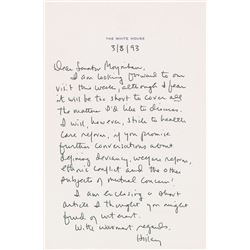 THE WHITE HOUSE
3/8/93
Dear Senator Moynihan,
I am looking forward to our
visit this week, although I fear
it will be too short to cover all
the matters I'd like to discuss.
I will, however, stick to health
care reform, if you promise
further conversations about
defining deviancy, welfare reform,
ethnic conflict and the other
subjects of mutual concern!
I am enclosing a short
article I thought you might
find of interest.
With warmest regards,
Hillary